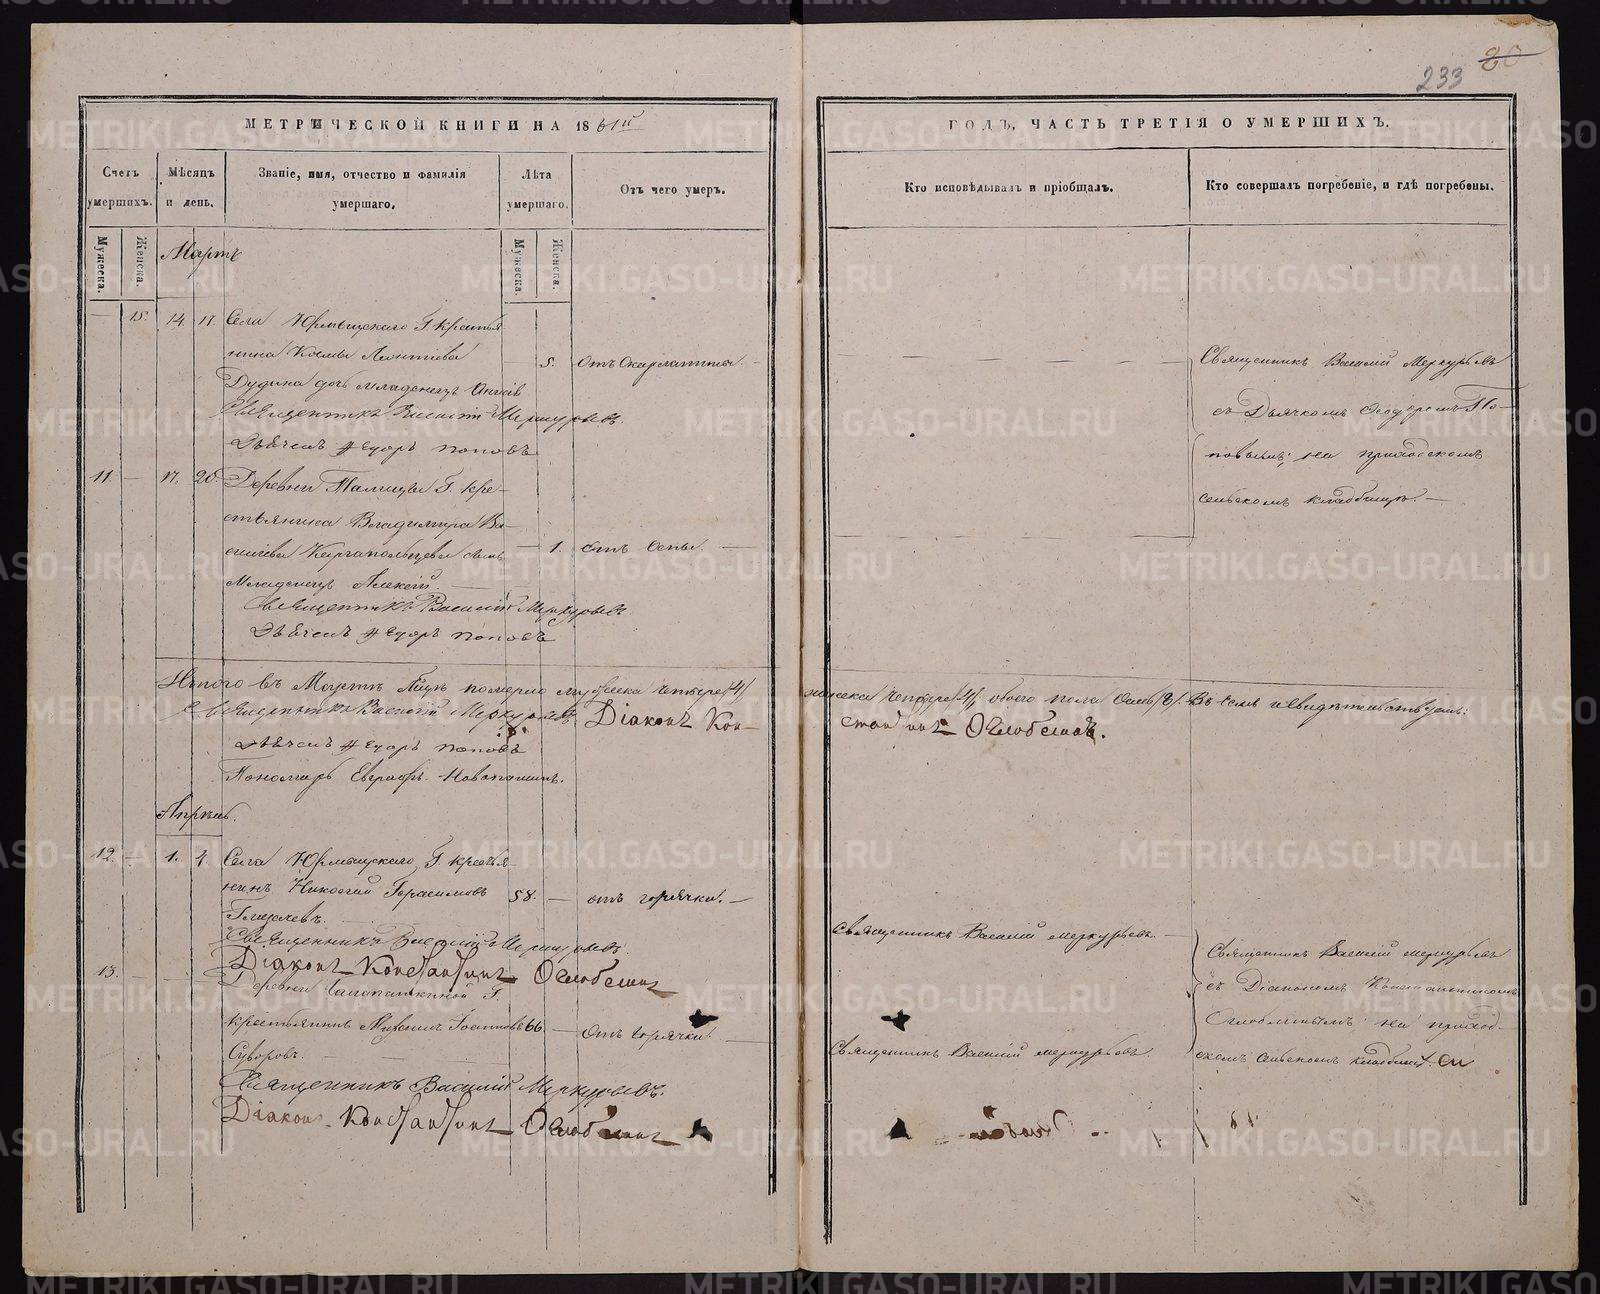 233 20
МЕТРИЧЕСКОЙ КНИГИ НА 1861й
ГОДЪ, ЧАСТЬ ТРЕТІЯ О УМЕРШИХЪ.
Счетъ умершихъ.
Мѣсяцъ и день.
Званіе, имя, отчество и фамилія умершаго.
Лѣта умершаго.
Отъ чего умеръ.
Кто исповѣдывалъ и пріобщалъ.
Кто совершалъ погребеніе, и гдѣ погребены.
Мужеска. Женска.
Мужеска. Женска.
Мартъ
15. 14. 17. Села Юрмыцкаго Г. крестья-
нина Космы Леонтіева
5. отъ Скарлатины.
Дудина дочь младенецъ
Священникъ Василій Меркурьевъ.
Дьячекъ Ѳедоръ Поповъ
Священникъ Василій Меркурьевъ
съ Дьячкомъ Ѳеодоромъ По-
повымъ; на приходскомъ
сельскомъ кладбищѣ.
11. 17. 20. Деревни Талицы Г. кре-
стьянина Владимира Ва-
сильева Каргапольцева сынъ
1. отъ Оспы.
Младенецъ Алексій
Священникъ Василій Меркурьевъ
Дьячекъ Ѳедоръ Поповъ
Итого въ Мартѣ м-цѣ померло мужеска четыре /4/
женска четыре /4/, обоего пола осмь /8/. Въ семъ свидѣтельствуемъ:
Священникъ Василій Меркурьевъ Діаконъ Кон-
стантинъ Оглоблинъ.
Дьячекъ Ѳедоръ Поповъ
Пономарь Евграфъ Новопашинъ.
Апрѣль.
12. 1. 4. Села Юрмыцкаго Г. крестья-
нинъ Николай Герасимовъ
58. отъ горячки.
Священникъ Василій Меркурьевъ.
Священникъ Василій Меркурьевъ.
Діаконъ Константинъ Оглоблинъ
13. Деревни Г.
крестьянинъ Михаилъ Іоанновъ 66. отъ горячки.
Суворовъ.
Священникъ Василій Меркурьевъ.
Священникъ Василій Меркурьевъ.
Діаконъ Константинъ Оглоблинъ
Священникъ Василій Меркурьевъ
съ Діакономъ Константиномъ
Оглоблинымъ на приход-
скомъ сельскомъ кладбищѣ.
METRIKI.GASO-URAL.RU